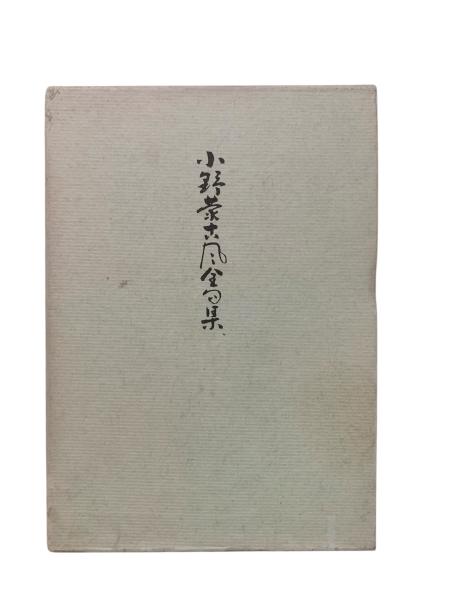 小野蒙古風全句集